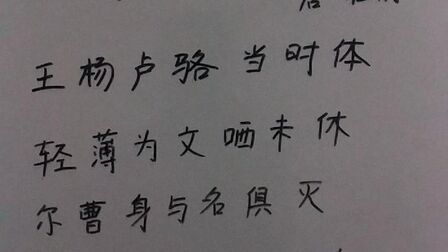 王杨卢骆当时体
轻薄为文哂未休
尔曹身与名俱灭